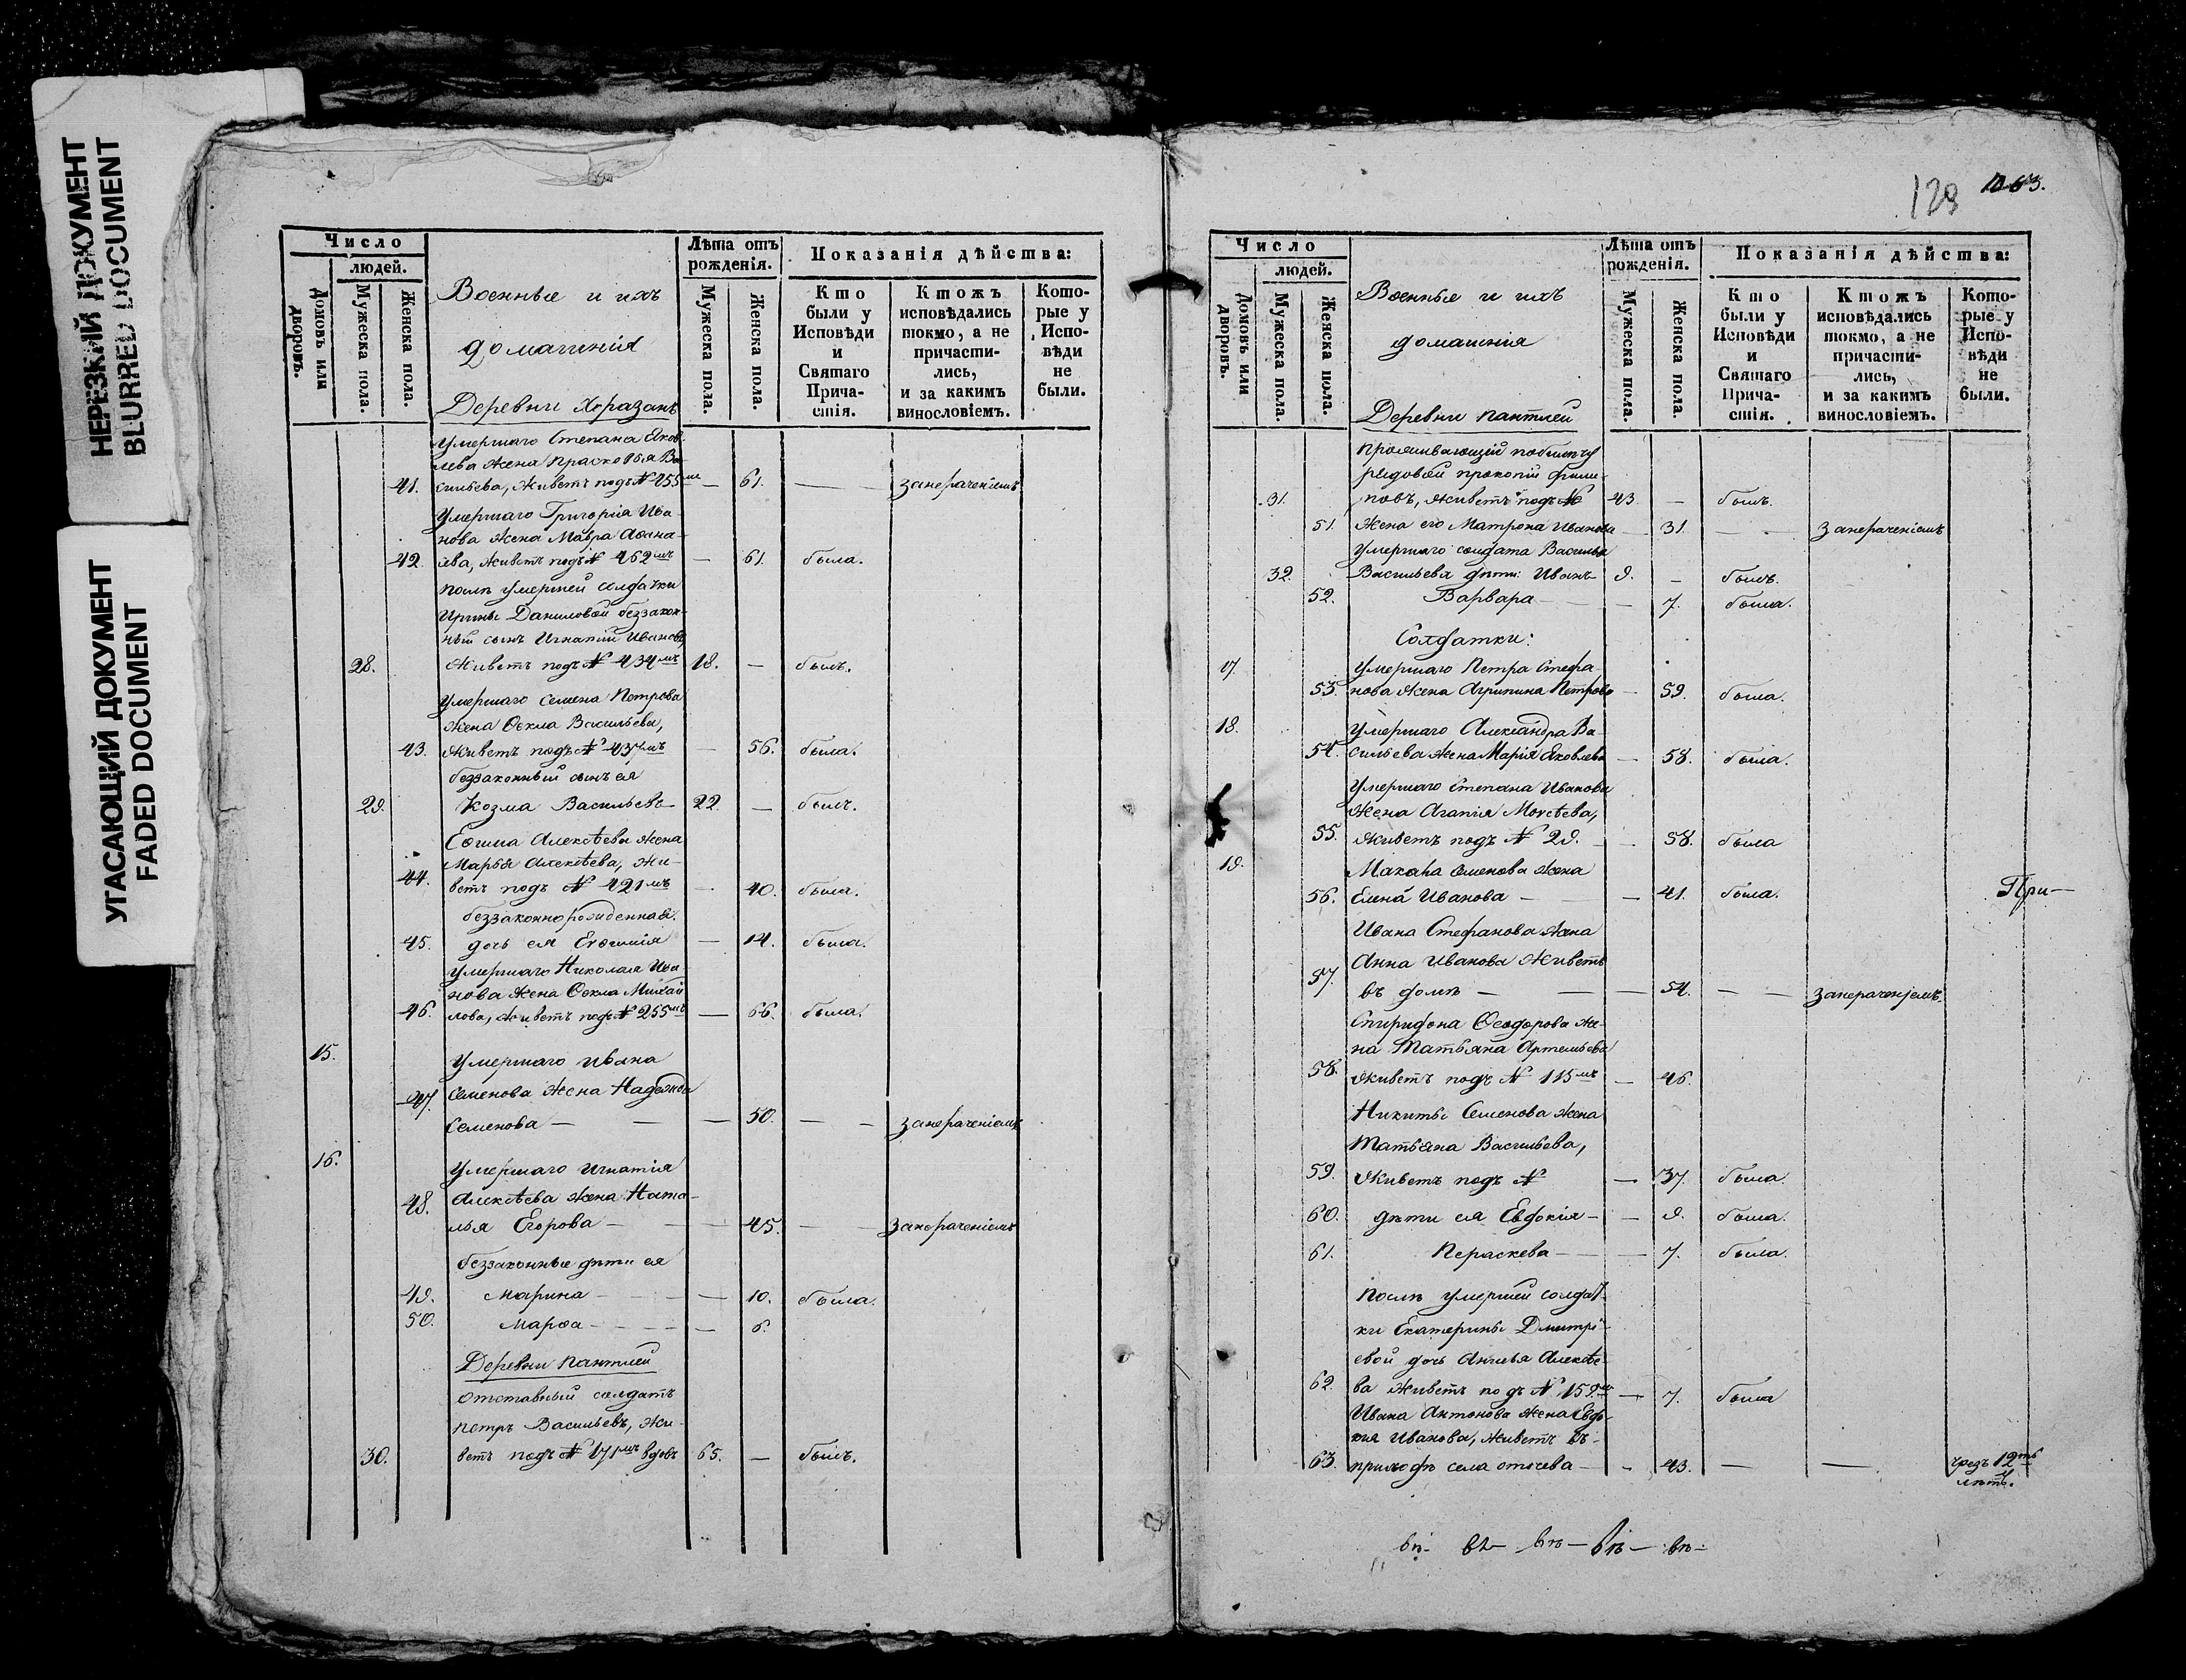 НЕРЕЗКИЙ ДОКУМЕНТ
BLURRED DOCUMENT
УГАСАЮЩИЙ ДОКУМЕНТ
FADED DOCUMENT
Число
людей.
Домовъ или дворовъ.
Мужеска пола.
Женска пола.
Военные и ихъ
домашнія
Деревни
Лѣта отъ рожденія.
Мужеска пола.
Женска пола.
Показанія дѣйства:
Кто были у Исповѣди и Святаго Причастія.
Ктожъ исповѣдались токмо, а не причастились, и за какимъ винословіемъ.
Которые у Исповѣди не были.
умершаго Степана Яков-
лева жена Прасковья Ва-
41. сильева, живетъ подъ № 255 — 61. —
умершаго Григорія Ива-
нова жена Мавра
42. живетъ подъ № 462мъ — 61. была.
послѣ умершей солдатки
Ирины Даниловой беззакон-
ный сынъ Игнатій Ивановъ,
28. живетъ подъ № 434мъ 18. — былъ.
умершаго Семена Петрова
жена Ѳекла Васильева,
43. живетъ подъ № 437мъ — 56. была.
беззаконный сынъ ея
29. Козма Васильевъ 22. — былъ.
Алексѣева жена
Марья Алексѣева, жи-
44. ветъ подъ № 421мъ — 40. была.
беззаконнорожденная
45. дочь ея Евѳимія — 14. была.
умершаго Николая Ива-
нова жена Ѳекла Михай-
46. лова, живетъ подъ № 255мъ — 66. была.
15. умершаго Ивана
47. Семенова жена Надежда
Семенова — — — 50. — —
16. умершаго Игнатія
48. Алексѣева жена Ната-
лья Егорова — — 45. —
беззаконные дѣти ея
49. Марина — 10. была.
50. Марѳа — — 6.
Деревни Пантлей
отставный солдатъ
Петръ Васильевъ, жи-
30. ветъ подъ № 171мъ вдовъ 65. — былъ.
129 1063.
Число
людей.
Домовъ или дворовъ.
Мужеска пола.
Женска пола.
Военные и ихъ
домашнія
Деревни Пантлей
Лѣта отъ рожденія.
Мужеска пола.
Женска пола.
Показанія дѣйства:
Кто были у Исповѣди и Святаго Причастія.
Ктожъ исповѣдались токмо, а не причастились, и за какимъ винословіемъ.
Которые у Исповѣди не были.
проживающій по билету
рядовой Прокопій Филип-
31. повъ, живетъ подъ № 43. — былъ.
51. жена его Матрона Иванова — 31. — —
умершаго солдата Василья
32. Васильева дѣти: Иванъ — 9. — былъ.
52. Варвара — — 7. была.
Солдатки:
17. умершаго Петра Стефа-
53. нова жена Агрипина Петрова — 59. была.
18. умершаго Александра Ва-
54. сильева жена Марія Яковлева — 58. была.
умершаго Степана Иванова
жена Агапія Моисѣева,
55. живетъ подъ № 29. — 58. была
19. Макара Семенова жена
56. Елена Иванова — — 41. была.
При—
Ивана Стефанова жена
Анна Иванова живетъ
57. въ домѣ — — — 54. — —
Спиридона Ѳеодорова же-
на Татьяна Артемьева
58. живетъ подъ № 115мъ — 46.
Никиты Семенова жена
Татьяна Васильева,
59. живетъ подъ № — 37. была.
60. дѣти ея Евдокія — — 9. была.
61. Параскева — — 7. была.
послѣ умершей солдат-
ки Екатерины Дмитрі-
евой дочь Алексѣе-
62. ва живетъ подъ № 159мъ — 7. была
Ивана Антонова жена Евдо-
кія Иванова, живетъ въ
63. приходѣ села — — 43. — — чрезъ 12ть
лѣтъ.
вѣ- вѣ- вѣ- вѣ- вѣ-